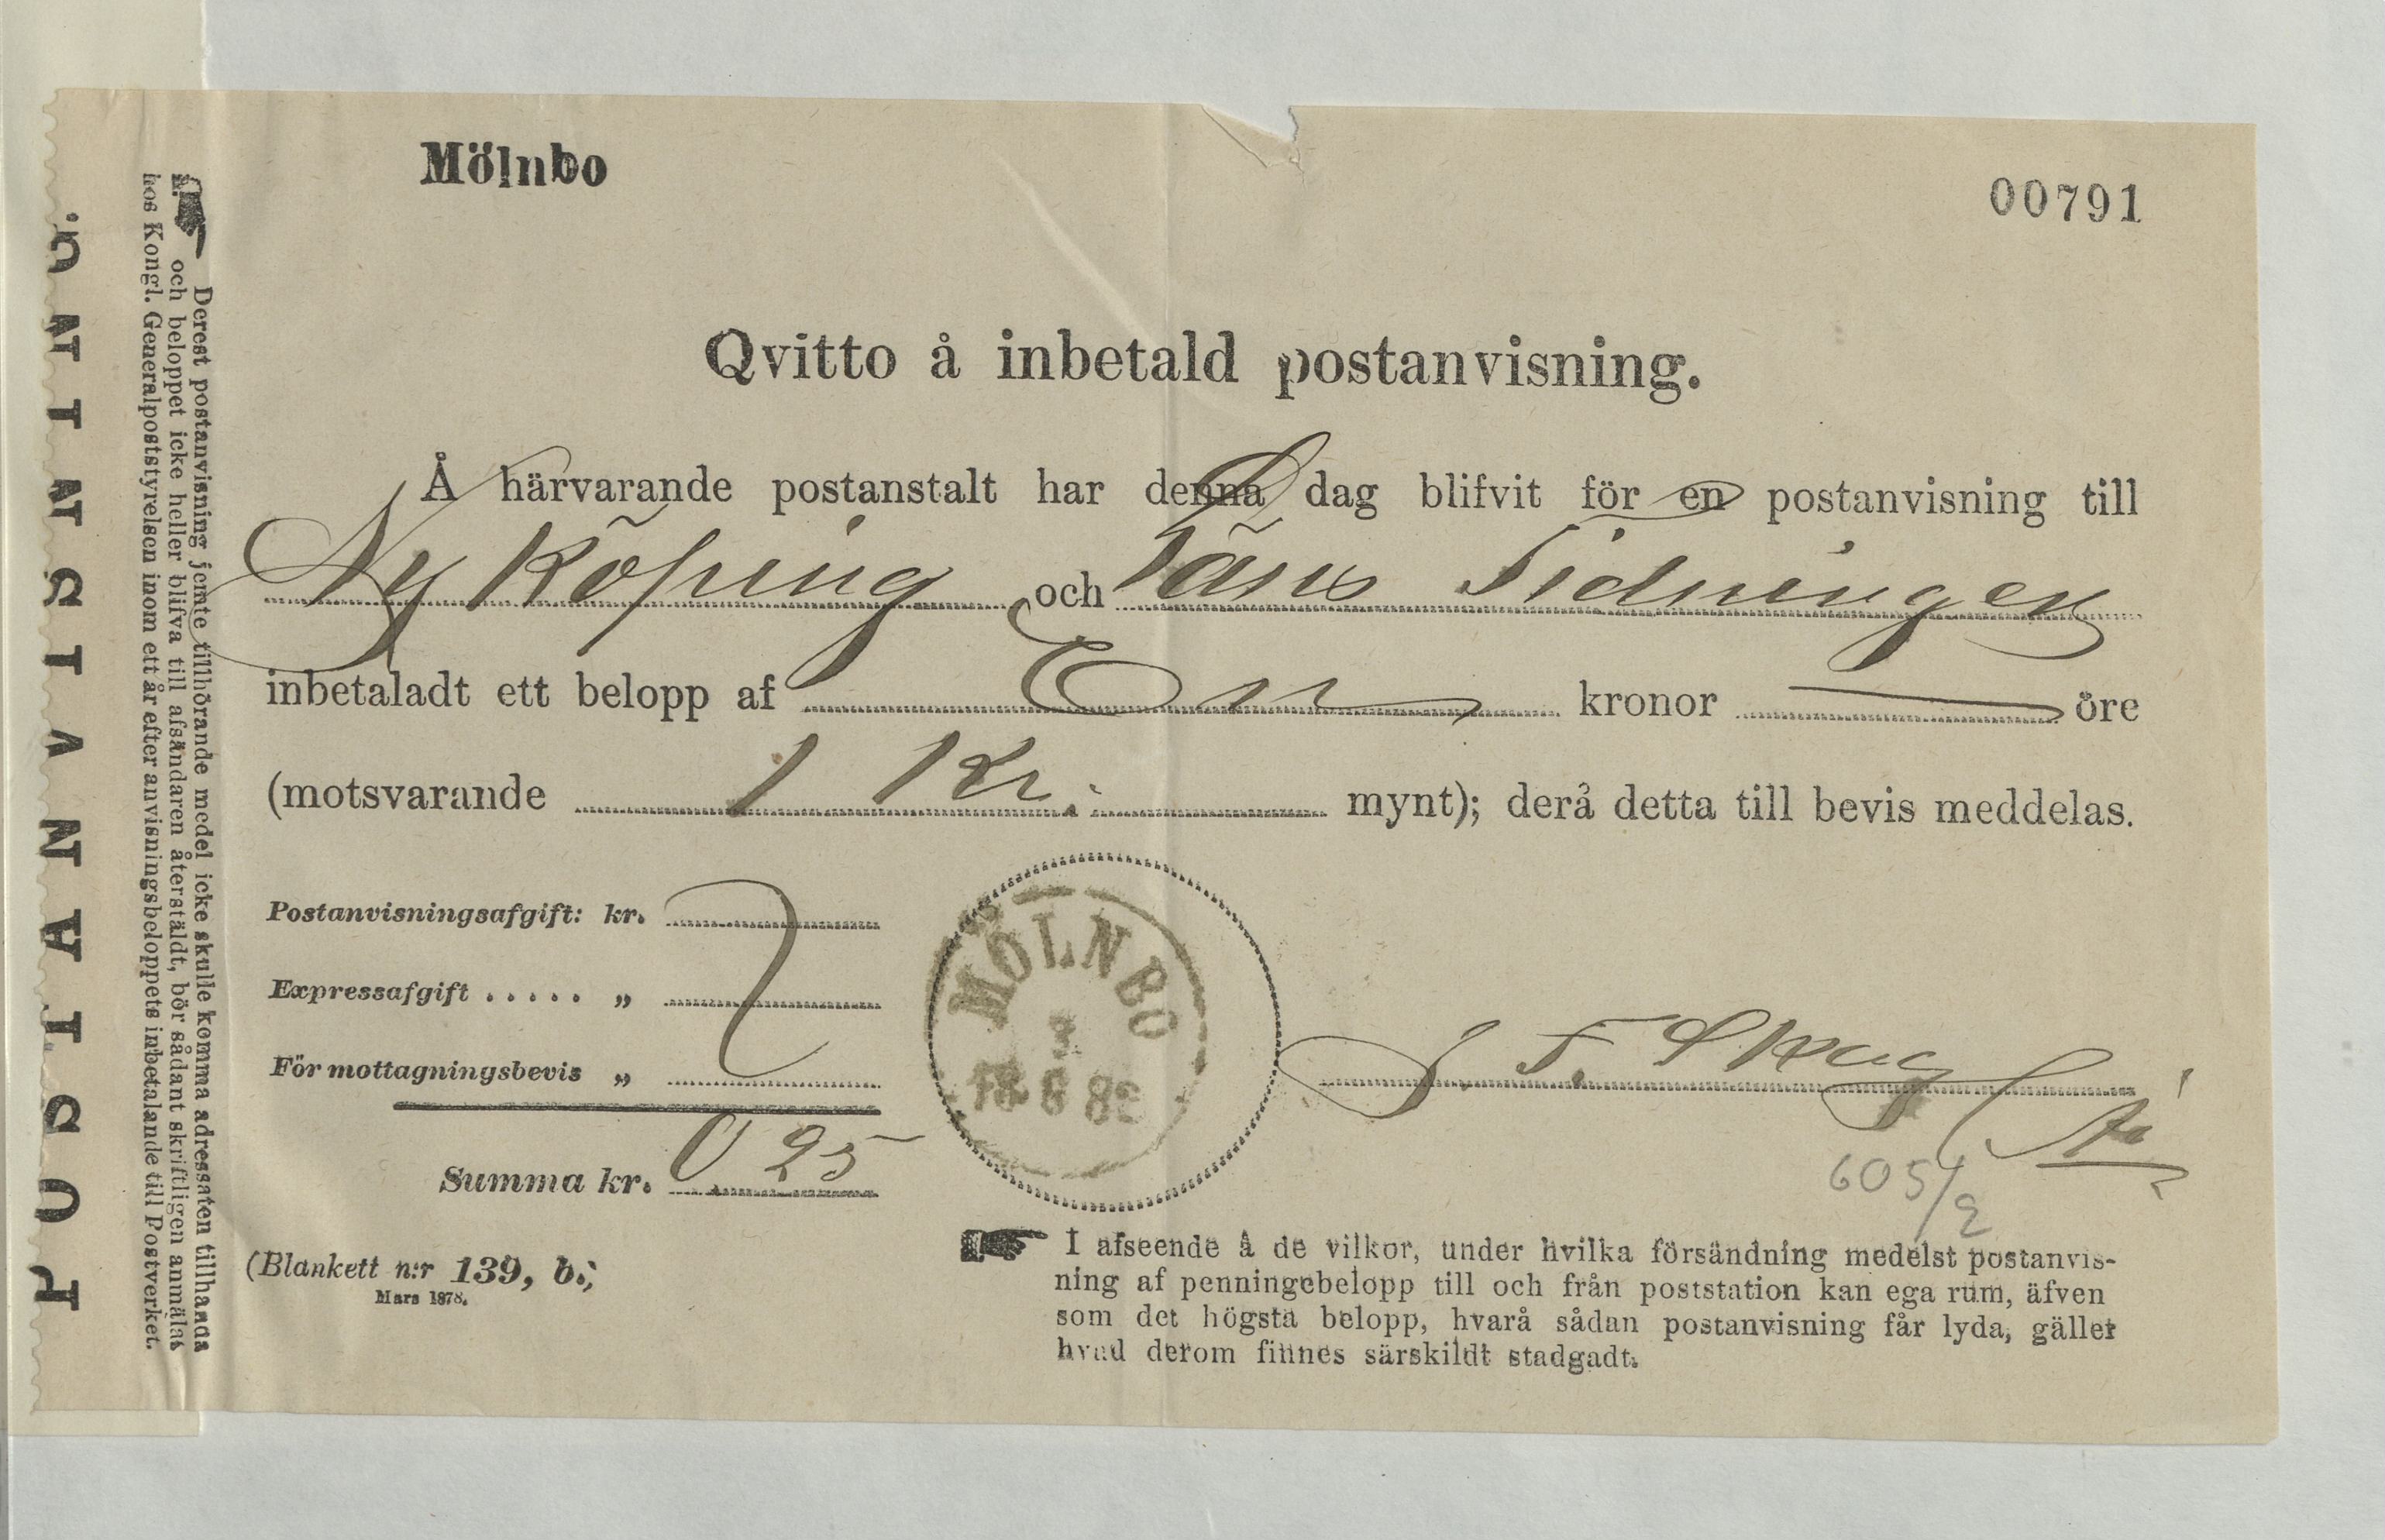 Mölnbo
00791
Qvitto å inbetald postanvisning.
Å härvarande postanstalt har denna dag blifvit för en postanvisning till
Nyköping och Läns Tidningen
inbetaladt ett belopp af En kronor — öre
(motsvarande 1 Kr. mynt); derå detta till bevis meddelas.
Postanvisningsafgift: kr.
Expressafgift ..... „
För mottagningsbevis „
Summa kr. 0 25
MÖLNBO
3
6
J. F. Skog
605/2
(Blankett n:r 139, b.;
Mars 1878.
I afseende å de vilkor, under hvilka försändning medelst postanvis-
ning af penningebelopp till och från poststation kan ega rum, äfven
som det högsta belopp, hvarå sådan postanvisning får lyda, gäller
hvad derom finnes särskildt stadgadt.
Derest postanvisning jemte tillhörande medel icke skulle komma adressaten tillhanda
och beloppet icke heller blifva till afsändaren återstäldt, bör sådant skriftligen anmälas
hos Kongl. Generalpoststyrelsen inom ett år efter anvisningsbeloppets inbetalande till Postverket.